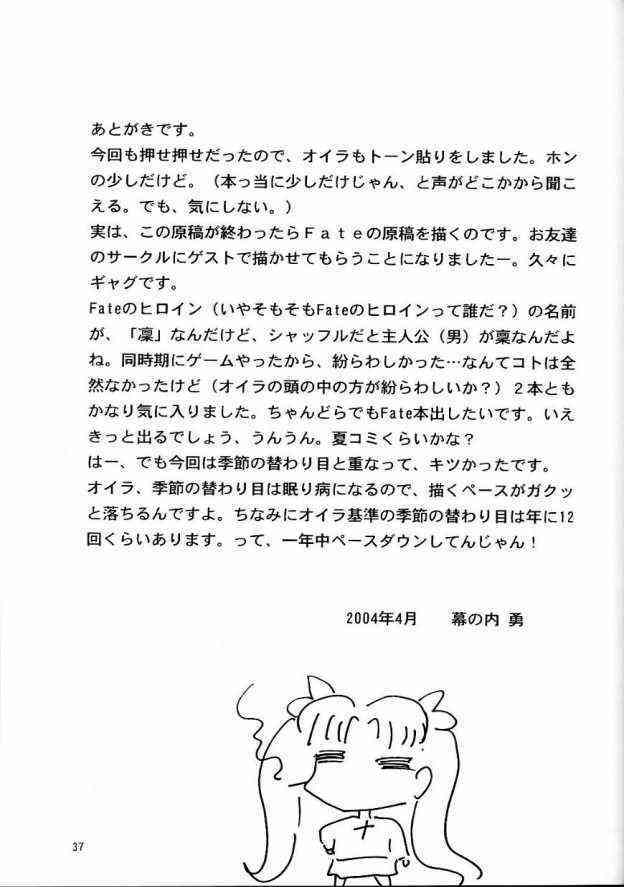 あとがきです。
今回も押せ押せだったので、オイラもトーン貼りをしました。ホン
の少しだけど。（本っ当に少しだけじゃん、と声がどこかから聞こ
える。でも、気にしない。）
実は、この原稿が終わったらＦａｔｅの原稿を描くのです。お友達
のサークルにゲストで描かせてもらうことになりましたー。久々に
ギャグです。
Fateのヒロイン（いやそもそもFateのヒロインって誰だ？）の名前
が、「凜」なんだけど、シャッフルだと主人公（男）が稟なんだよ
ね。同時期にゲームやったから、紛らわしかった…なんてコトは全
然なかったけど（オイラの頭の中の方が紛らわしいか？）２本とも
かなり気に入りました。ちゃんどらでもFate本出したいです。いえ
きっと出るでしょう、うんうん。夏コミくらいかな？
はー、でも今回は季節の替わり目と重なって、キツかったです。
オイラ、季節の替わり目は眠り病になるので、描くペースがガクッ
と落ちるんですよ。ちなみにオイラ基準の季節の替わり目は年に12
回くらいあります。って、一年中ペースダウンしてんじゃん！
2004年4月　幕の内 勇
37